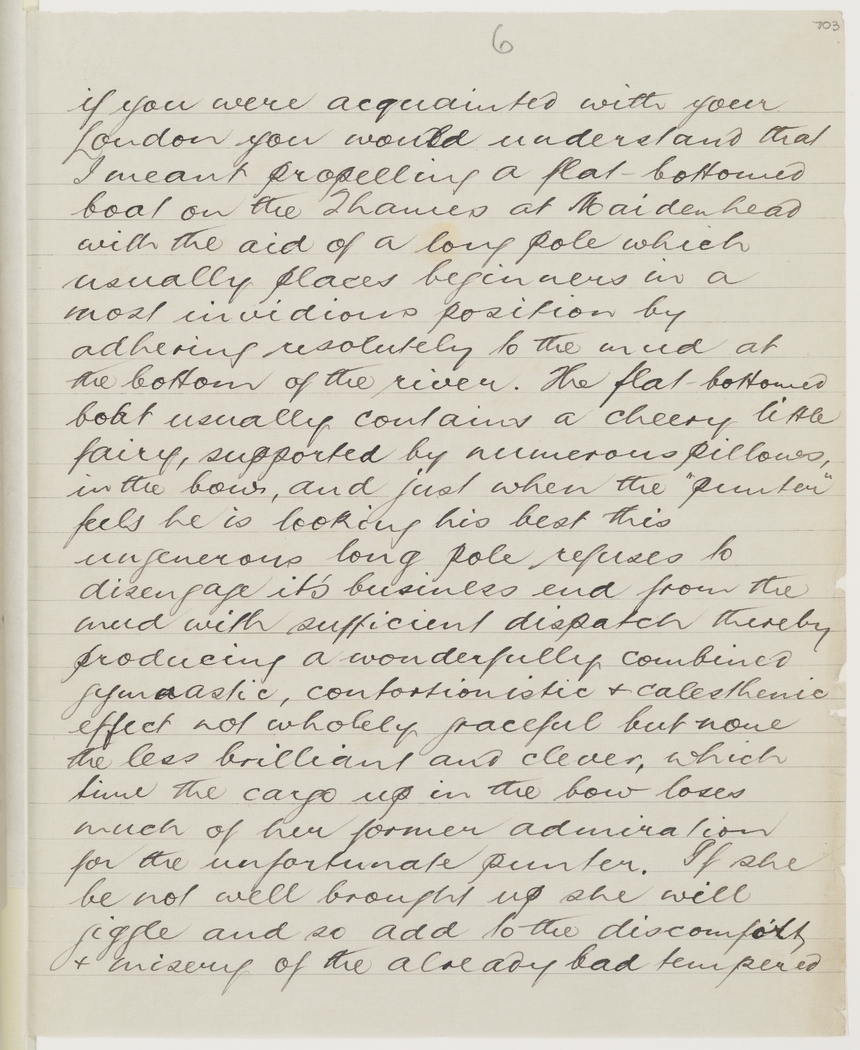 6
703
if you were acquainted with your
London you would understand that
I meant propelling a flat-bottomed
boat on the Thames at Maidenhead
with the aid of a long pole which
usually places beginners in a
most invidious position by
adhering resolutely to the mud at
the bottom of the river. The flat-bottomed
boat usually contains a cheery little
fairy, supported by numerous pillows,
in the bows, and just when the "punter"
feels he is looking his best this
ungenerous long pole refuses to
disengage it's business end from the
mud with sufficient dispatch thereby
producing a wonderfully combined
gymnastic, contortionistic & calesthenic
effect not wholely graceful but none
the less brilliant and clever, which
time the cargo up in the bow loses
much of her former admiration
for the unfortunate punter. If she
be not well brought up she will
giggle and so add to the discomfort
& misery of the already bad tempered